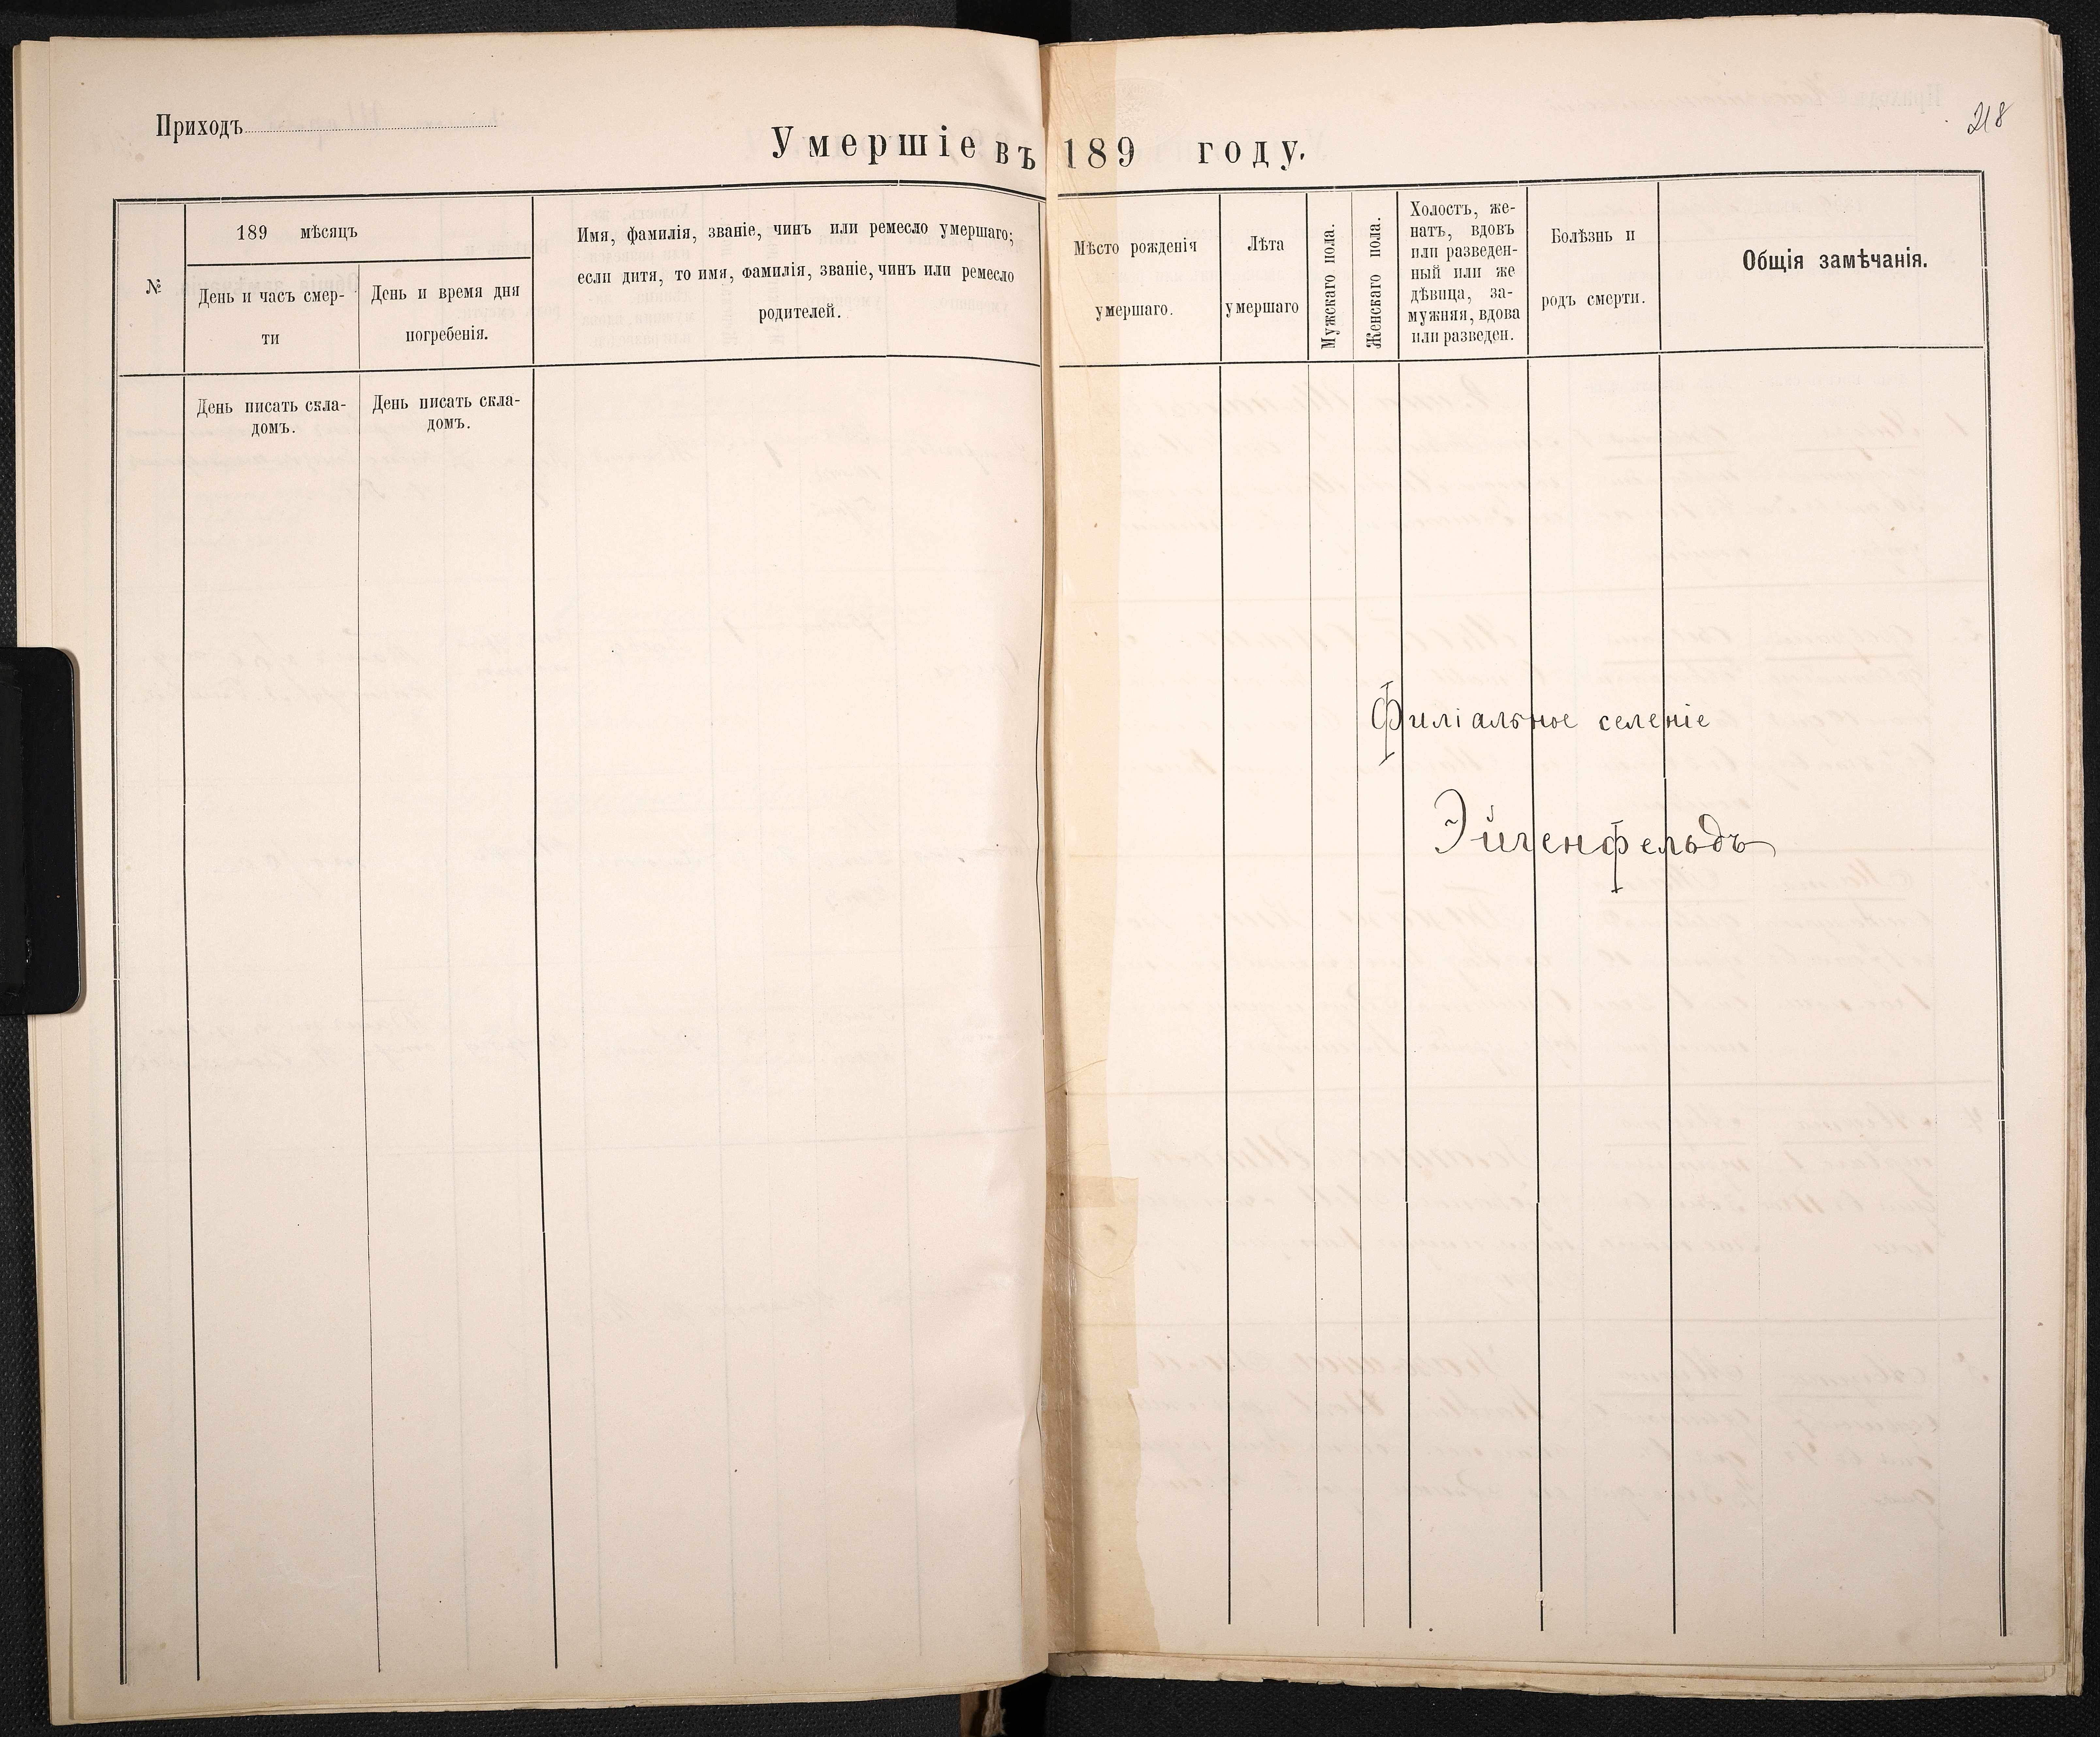 Приходъ
Умершіе въ 189 году.
218
№
189 мѣсяцъ
День и часъ смер-
ти
День и время дня
погребенія.
Имя, фамилія, званіе, чинъ или ремесло умершаго;
если дитя, то имя, фамилія, званіе, чинъ или ремесло
родителей.
Мѣсто рожденія
умершаго.
Лѣта
умершаго
Мужскаго пола.
Женскаго пола.
Холостъ, же-
натъ, вдовъ
или разведен-
ный или же
дѣвица, за-
мужняя, вдова
или разведен.
Болѣзнь и
родъ смерти.
Общія замѣчанія.
День писать скла-
домъ.
День писать скла-
домъ.
Филіальное селеніе
Эйгенфельдъ